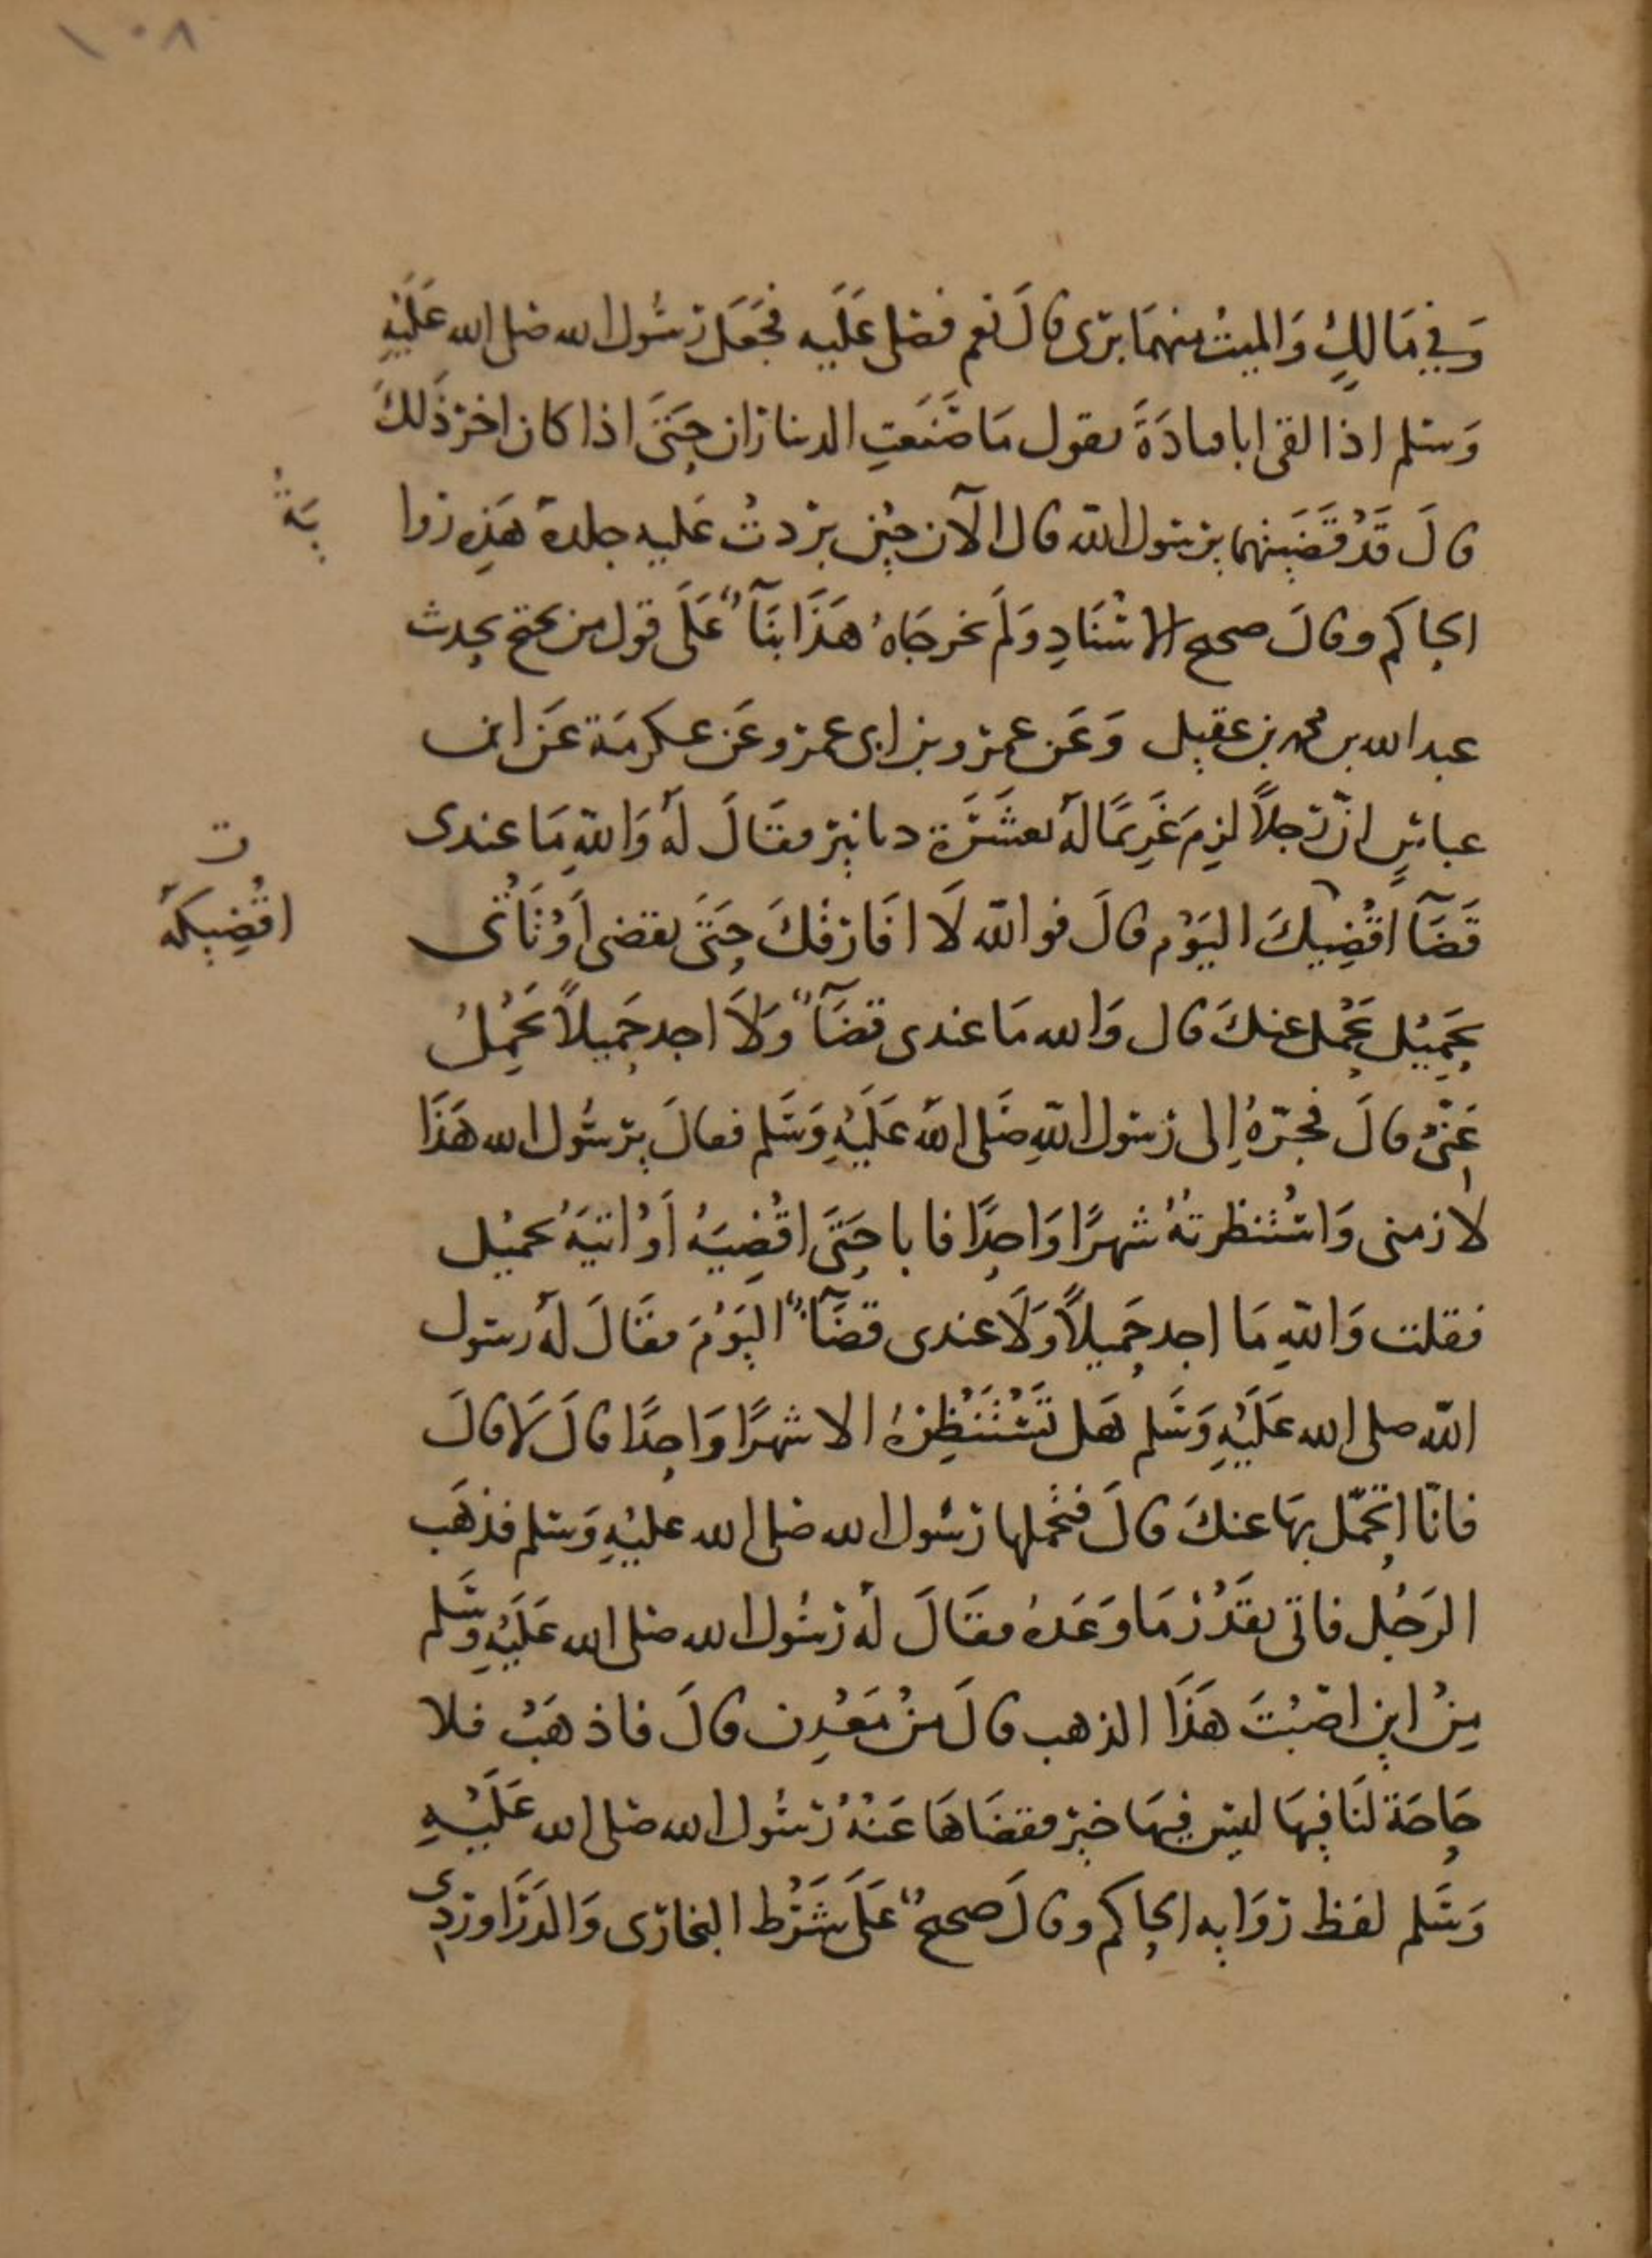 ١٠٨
وَفي مَالكٍ وَالميتُ منهمَا بَرى قَالَ نعم فصَلى عَلَيه فجَعَل رَسُول الله صَلى الله عَلَيْهِ
وَسَلم اذا لقى ابا قتادَةَ يقول مَا صَنَعَتِ الديناران حَتىَ اذا كان اخر ذَلكَ
قَالَ قَدْ قَضَيتهما يرسول اللّه قال الآن حِيْنَ بردتْ عَليه جلدهُ هَذِه روا
يَة
الحاكم وقالَ صحيح الاسْنَادِ وَلَم يخرجَاهُ هَذَا بنَآءً عَلَى قول من يحتج بحديث
عبد الله بن محمد بن عقيل وَعَن عمرو بن ابى عمرو عَن عكرمَة عَن ابن
عباسٍ انّ رَجلاً لزِمَ غَرِيمًا لهُ بعشَرَة دنانير فقَالَ لهُ وَاللهِ مَا عندى
قَضَآ اقْضِيكَ اليَوْم قالَ فو اللّه لَا افَارقْكَ حَتىَ تقضى أَوْ تَأتى
ت
اقْضِيكهُ
بحَمِيْل يَحْمل عنكَ قال وَالله مَا عندى قضَآءً وَلَا اجد حَميلاً يَحْمِلُ
عَنّى قالَ فجَرّهُ إِلى رسول اللّهِ صَلى اللّه عَلَيْهِ وَسَلم فقالَ يرسُول الله هَذَا
لازمنى وَاسْتنظرتهُ شهرًا وَاحِدًا فابا حَتىَ اقْضِيَهُ أَوْ اتيَهُ بحميْل
فقلت وَاللهِ مَا اجد حَميلاً وَلَا عندى قضَآءً اليَوْمَ فقَالَ لهُ رسول
اللّه صلى الله عَلَيْهِ وَسَلم هَل تَسْتَنْظِرُهُ الا شهرًا وَاحِدًا قالَ لَا قالَ
فانا اتحَمّل بهَا عنكَ قالَ فتحَملها رَسُول الله صَلى الله عليْهِ وَسَلم فذهَب
الرَجُل فاتى بقَدْر مَا وَعَدهُ فقَالَ لهُ رَسُول الله صَلى الله عَلَيْهِ وَسَلم
مِنْ اين اصَبْتَ هَذَا الذهب قالَ مِنْ مَعْدِن قالَ فاذهَبْ فلا
حَاجَة لنَا فِيهَا ليسَ فِيهَا خير فقضَاهَا عَنْهُ رَسُول الله صَلى الله عَلَيْهِ
وَسَلم لفظ رِوَايه الحاكم وقالَ صحيحٌ عَلَى شَرْط البخارى وَالدَرَاوردى